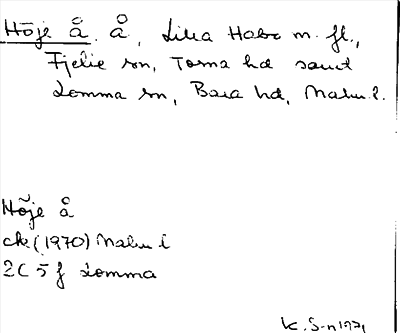 Höje å. å, Lilla Habo m. fl.,
Fjelie sn, Torna hd samt
Lomma sn, Bara hd, Malm. l.
Höje å
ek (1970) Malm l
2C 5f Lomma
K. S-n 1971